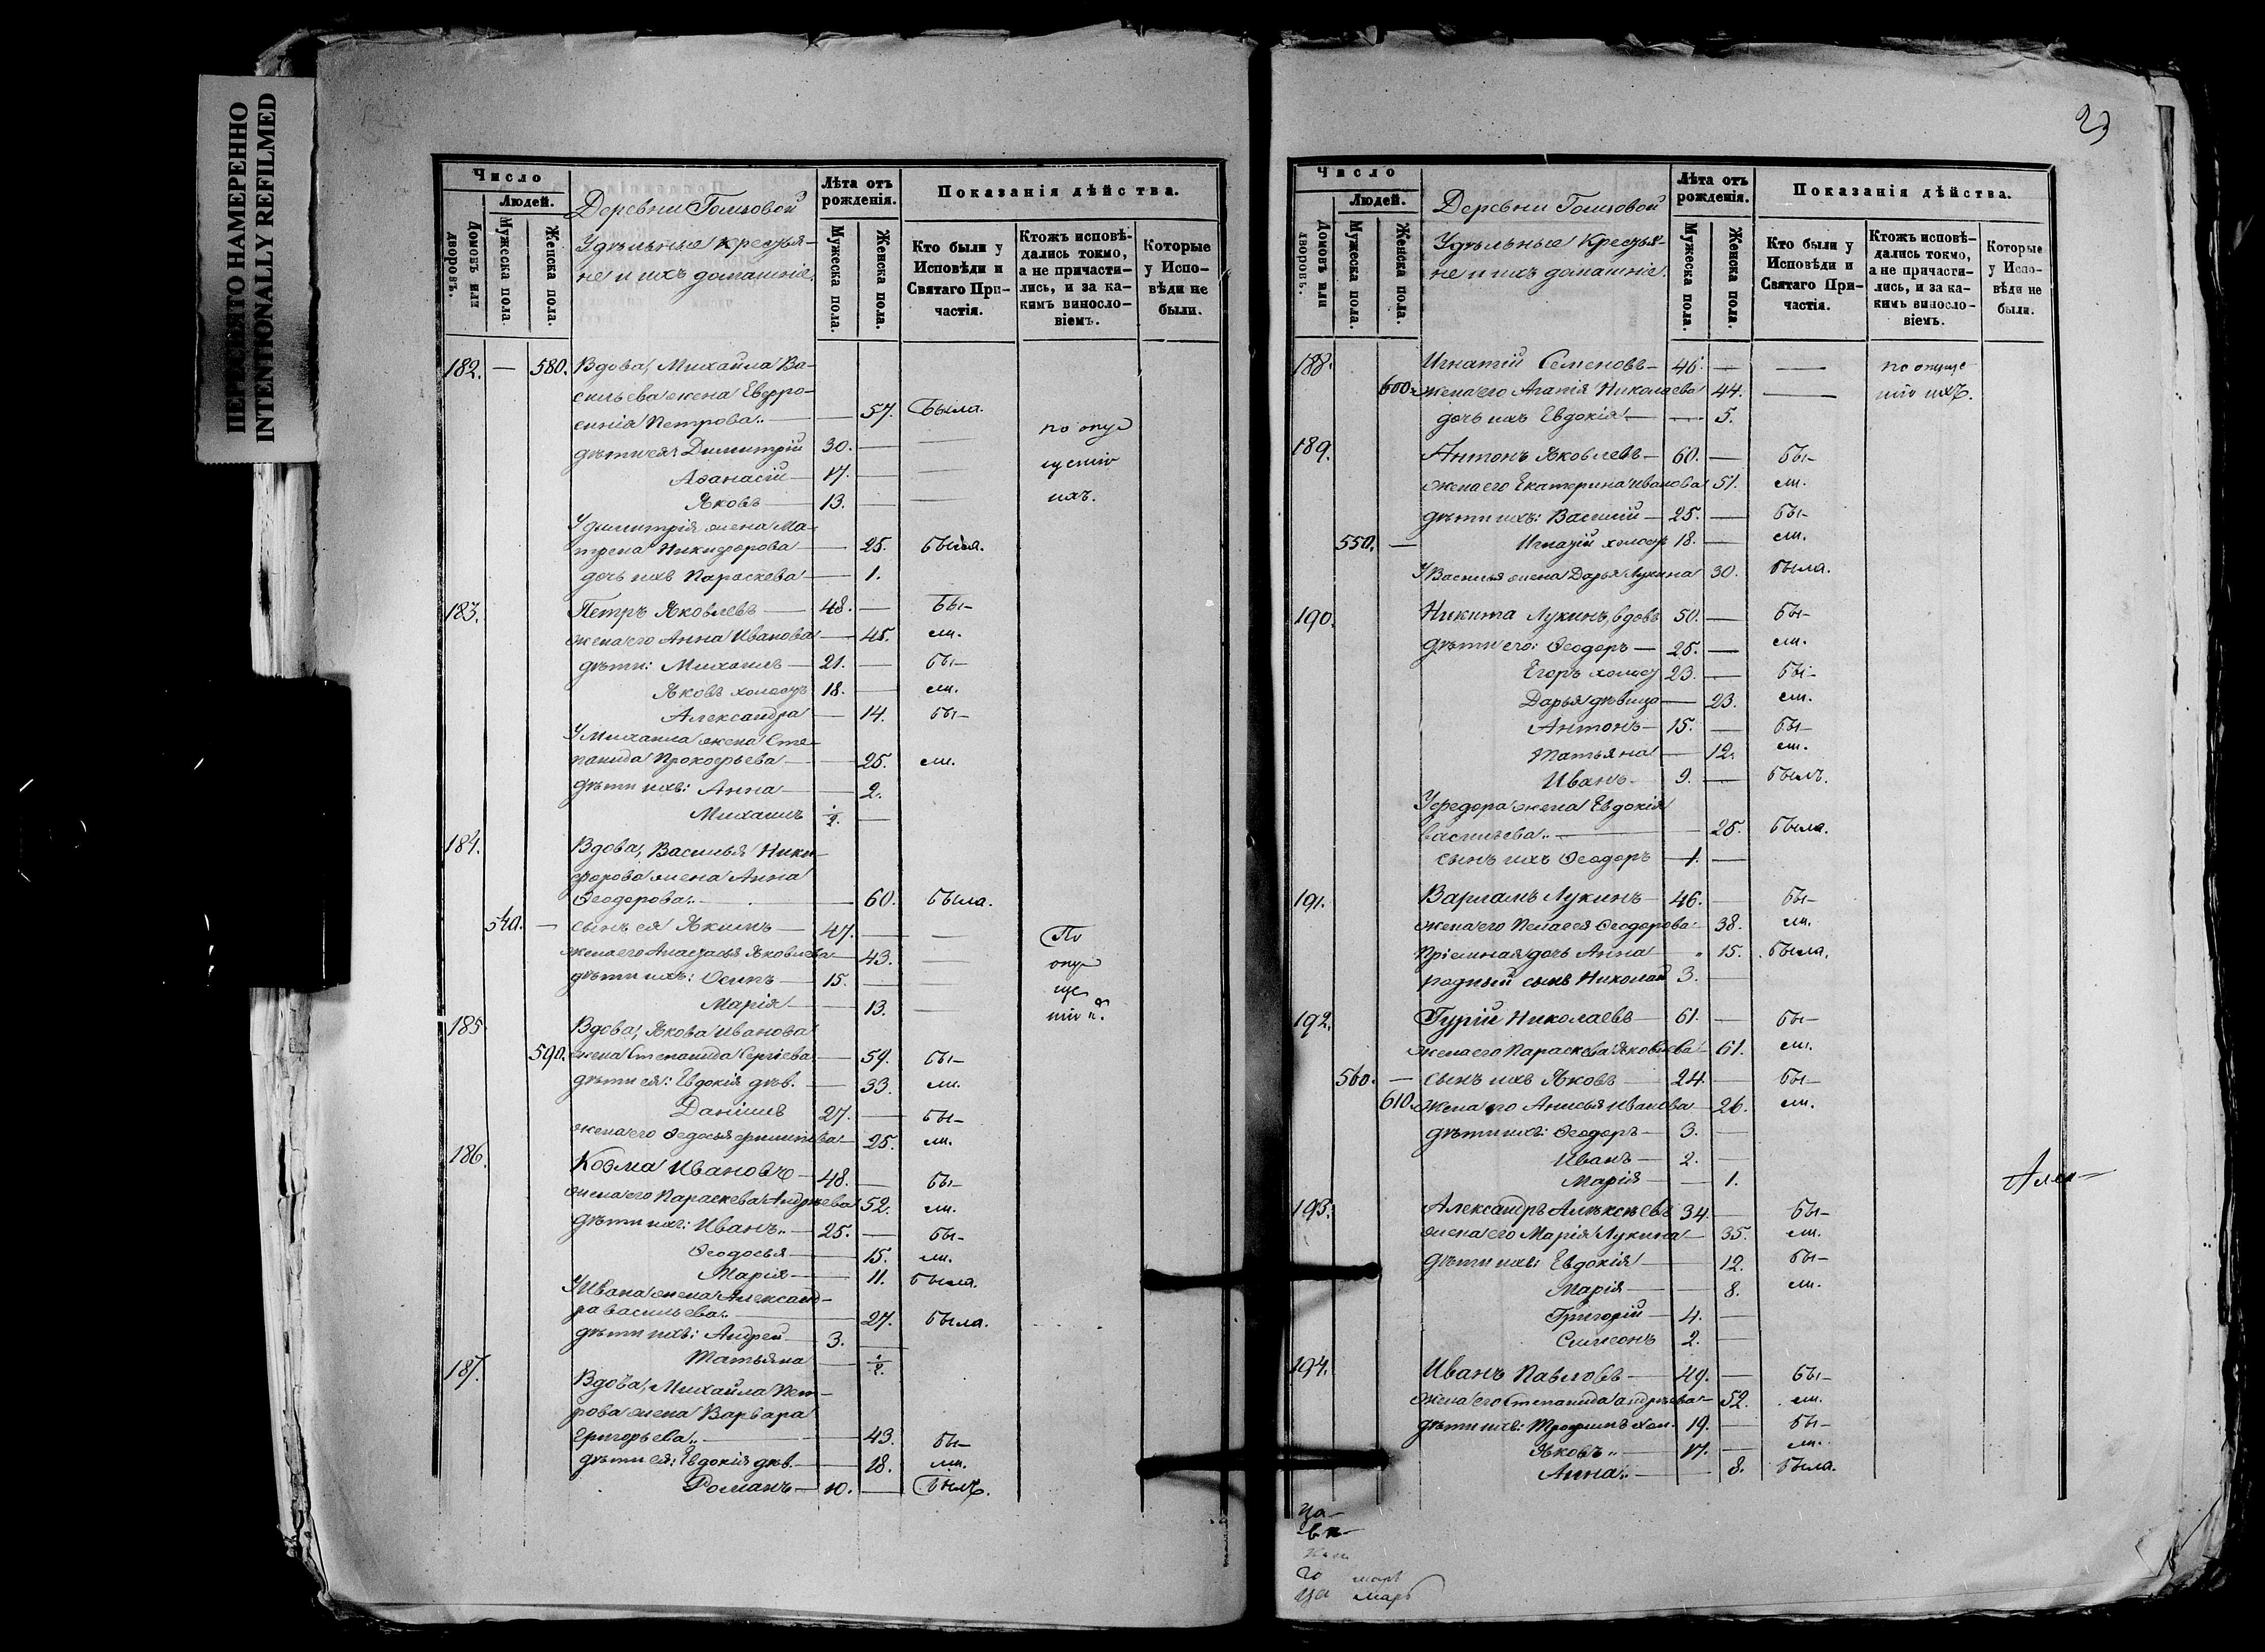 ПЕРЕСНЯТО НАМЕРЕННО
INTENTIONALLY REFILMED
Число
Людей.
Домовъ или дворовъ.
Мужеска пола.
Женска пола.
Деревни Гольовой
Удѣльные крестья-
не и ихъ домашніе.
Лѣта отъ рожденія.
Мужеска пола.
Женска пола.
Показанія дѣйства.
Кто были у Исповѣди и Святаго Причастія.
Ктожъ исповѣ-
дались токмо,
а не причасти-
лись, и за ка-
кимъ винословіемъ.
Которые у Испо-
вѣди не были.
182. — 580. Вдова, Михайла Ва-
сильева жена Евфро-
синія Петрова — 57. Была.
дѣти ея: Димитрій 30. — по опу
Аѳанасій — 17. — щенію
Яковъ — 13. — ихъ.
У Димитрія жена Ма-
трена Никифорова — 25. была.
дочь ихъ Параскева — 1.
183. Петръ Яковлевъ — 48. — бы-
жена его Анна Иванова — 45. ли.
дѣти: Михаилъ — 21. — бы-
Яковъ холостъ 18. — ли.
Александра — 14. бы-
У Михаила жена Сте-
панида Прокофьева — 25. ли.
дѣти ихъ: Анна — 2.
Михаилъ 1/2. —
184. Вдова, Василья Ники-
форова жена Анна
Ѳеодорова — 60. была.
540. — сынъ ея Якимъ — 47. — По
жена его Анастасья Яковлева — 43. опу
дѣти ихъ: Осипъ — 15. — ще
Марія — 13. — нію
185. Вдова, Якова Иванова
590. жена Степанида Сергіева — 59. бы-
дѣти ея: Евдокія дѣв. — 33. ли.
Даніилъ 27. — бы-
жена его Ѳедосья Филипова — 25. ли.
186. Козма Ивановъ — 48. — бы-
жена его Параскева Андрѣева 52. ли.
дѣти ихъ: Иванъ — 25. — бы-
Ѳеодосья — 15. ли.
Марія — 11. была.
У Ивана жена Александ-
ра Васильева — 27. была.
дѣти ихъ: Андрей — 3. —
Татьяна — 1/2.
187. Вдова, Михайла Пет-
рова жена Варвара
Григорьева — 43. бы-
дѣти ея: Евдокія дѣв. — 18. ли.
Романъ — 10. — былъ.
23
Число
Людей.
Домовъ или дворовъ.
Мужеска пола.
Женска пола.
Деревни Гольовой
Удѣльные Крестья-
не и ихъ домашніе.
Лѣта отъ рожденія.
Мужеска пола.
Женска пола.
Показанія дѣйства.
Кто были у Исповѣди и Святаго Причастія.
Ктожъ исповѣ-
дались токмо,
а не причасти-
лись, и за ка-
кимъ винословіемъ.
Которые у Испо-
вѣди не были.
188. Игнатій Семеновъ — 46. — по опуще
600. жена его Агапія Николаева 44. — нію ихъ.
дочь ихъ Евдокія — 5.
189. Антонъ Яковлевъ — 60. — бы-
жена его Екатерина Иванова 51. ли.
дѣти ихъ: Василій — 25. — бы-
550. — Игнатій холостъ 18. — ли.
У Василья жена Дарья Лукина 30. была.
190. Никита Лукинъ, вдовъ 50. — бы-
дѣти его: Ѳеодоръ — 25. — ли.
Егоръ холост 23. — бы-
Дарья дѣвица — 23. ли.
Антонъ — 15. — бы-
Татьяна — 12. ли.
Иванъ — 9. — былъ.
У Федора жена Евдокія
Васильева — 25. была.
сынъ ихъ Ѳеодоръ — 1. —
191. Варламъ Лукинъ — 46. — бы-
жена его Пелагея Ѳеодорова — 38. ли.
Пріемная дочь Анна — 15. была.
родный сынъ Николай 3. —
192. Гурій Николаевъ — 61. — бы-
жена его Параскева Яковлева — 61. ли.
560. — сынъ ихъ Яковъ — 24. — бы-
610. жена его Анисья Иванова — 26. ли.
дѣти ихъ: Ѳеодоръ — 3. —
Иванъ — 2. —
Марія — 1.
193. Александръ Алексѣевъ 34. — бы-
жена его Марія Лукина — 35. ли.
дѣти ихъ: Евдокія — 12. бы-
Марія — 8. ли.
Григорій — 4. —
Симеонъ 2. —
194. Иванъ Павловъ — 49. — бы-
жена его Степанида Андрѣева — 52. ли.
дѣти ихъ: Трофимъ хол. 19. — бы-
Яковъ — 17. — ли.
Анна — 8. была.